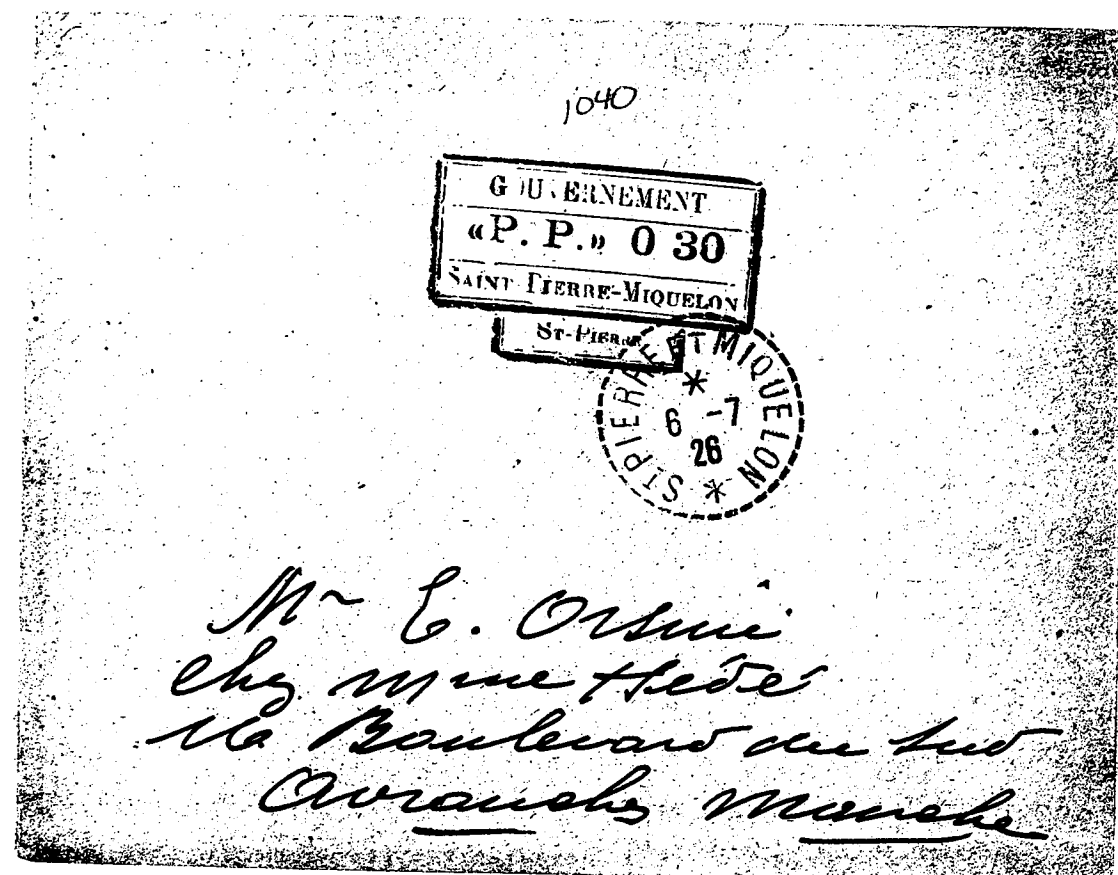 1040
GOUVERNEMENT
«P. P.» 0 30
SAINT PIERRE-MIQUELON
ST-PIERRE
ST PIERRE ET MIQUELON
6 -7
26
Mr E. Orsini
chez Mme Hédé
Boulevard du Sud
Avranches Manche